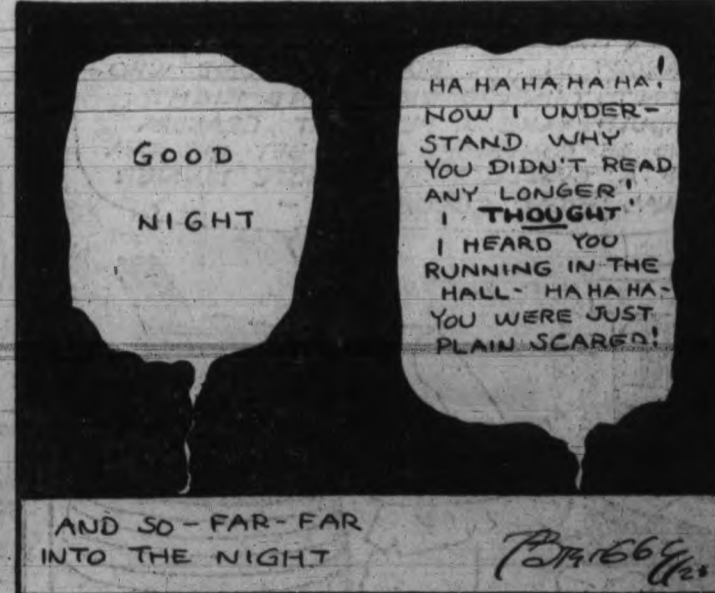 GOOD
NIGHT
HA HA HA HA HA!
NOW I UNDER-
STAND WHY
YOU DIDN'T READ
ANY LONGER!
I THOUGHT
I HEARD YOU
RUNNING IN THE
HALL- HA HA HA-
YOU WERE JUST
PLAIN SCARED!
AND SO - FAR - FAR
INTO THE NIGHT
BRIGGS